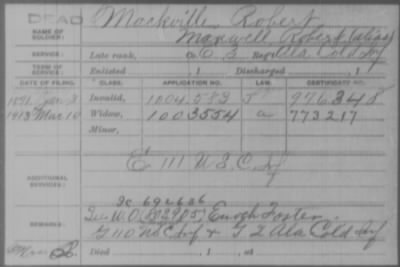 DEAD
NAME OF SOLDIER: Mackville, Robert
Maxwell Robert (alias)
SERVICE: Late rank, Co. G, Reg't Ala Cold Inf
TERM OF SERVICE: Enlisted , 1 Discharged , 1
DATE OF FILING. CLASS. APPLICATION NO. LAW. CERTIFICATE NO.
1891 Jan 3 Invalid, 1004.083 J 976348
1913 Mar 10 Widow, 1003554 a 773217
Minor,
ADDITIONAL SERVICES: E 111 U S C Inf
REMARKS: Ic 692626
W.O. (802905) Enoch Foster.
G 110 US C Inf & G 2 Ala Cold Inf
Died , 1 , at